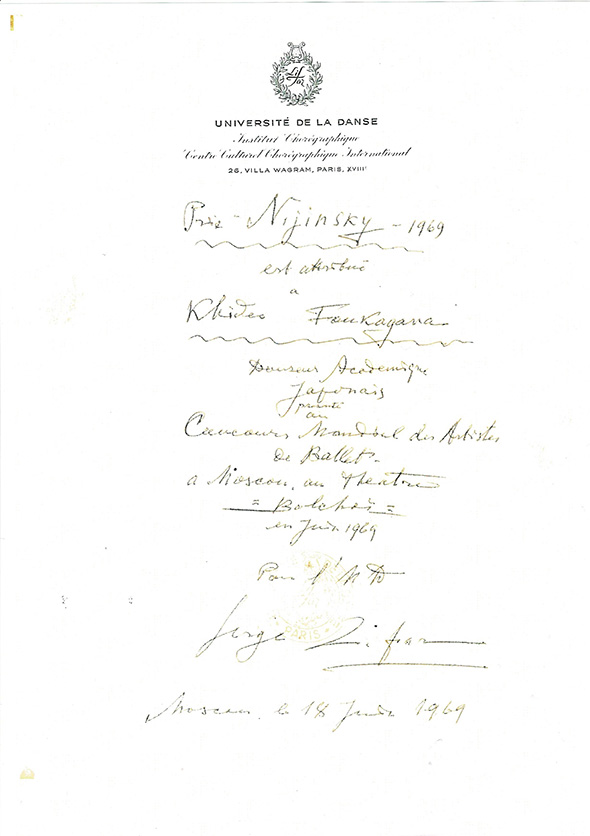 Lifar
UNIVERSITÉ DE LA DANSE
Institut Chorégraphique
Centre Culturel Chorégraphique International
26, VILLA WAGRAM, PARIS, XVIIIe
Prix - Nijinsky - 1969
est attribué
a
Khideo Foukagava
Danseur Académique
Japonais
au
Concours Mondial des Artistes
de Ballet -
a Moscou, au Theatre
= Bolchoi =
en Juin 1969
Pour l'UD
PARIS
Serge Lifar
Moscou, le 18 Juin 1969